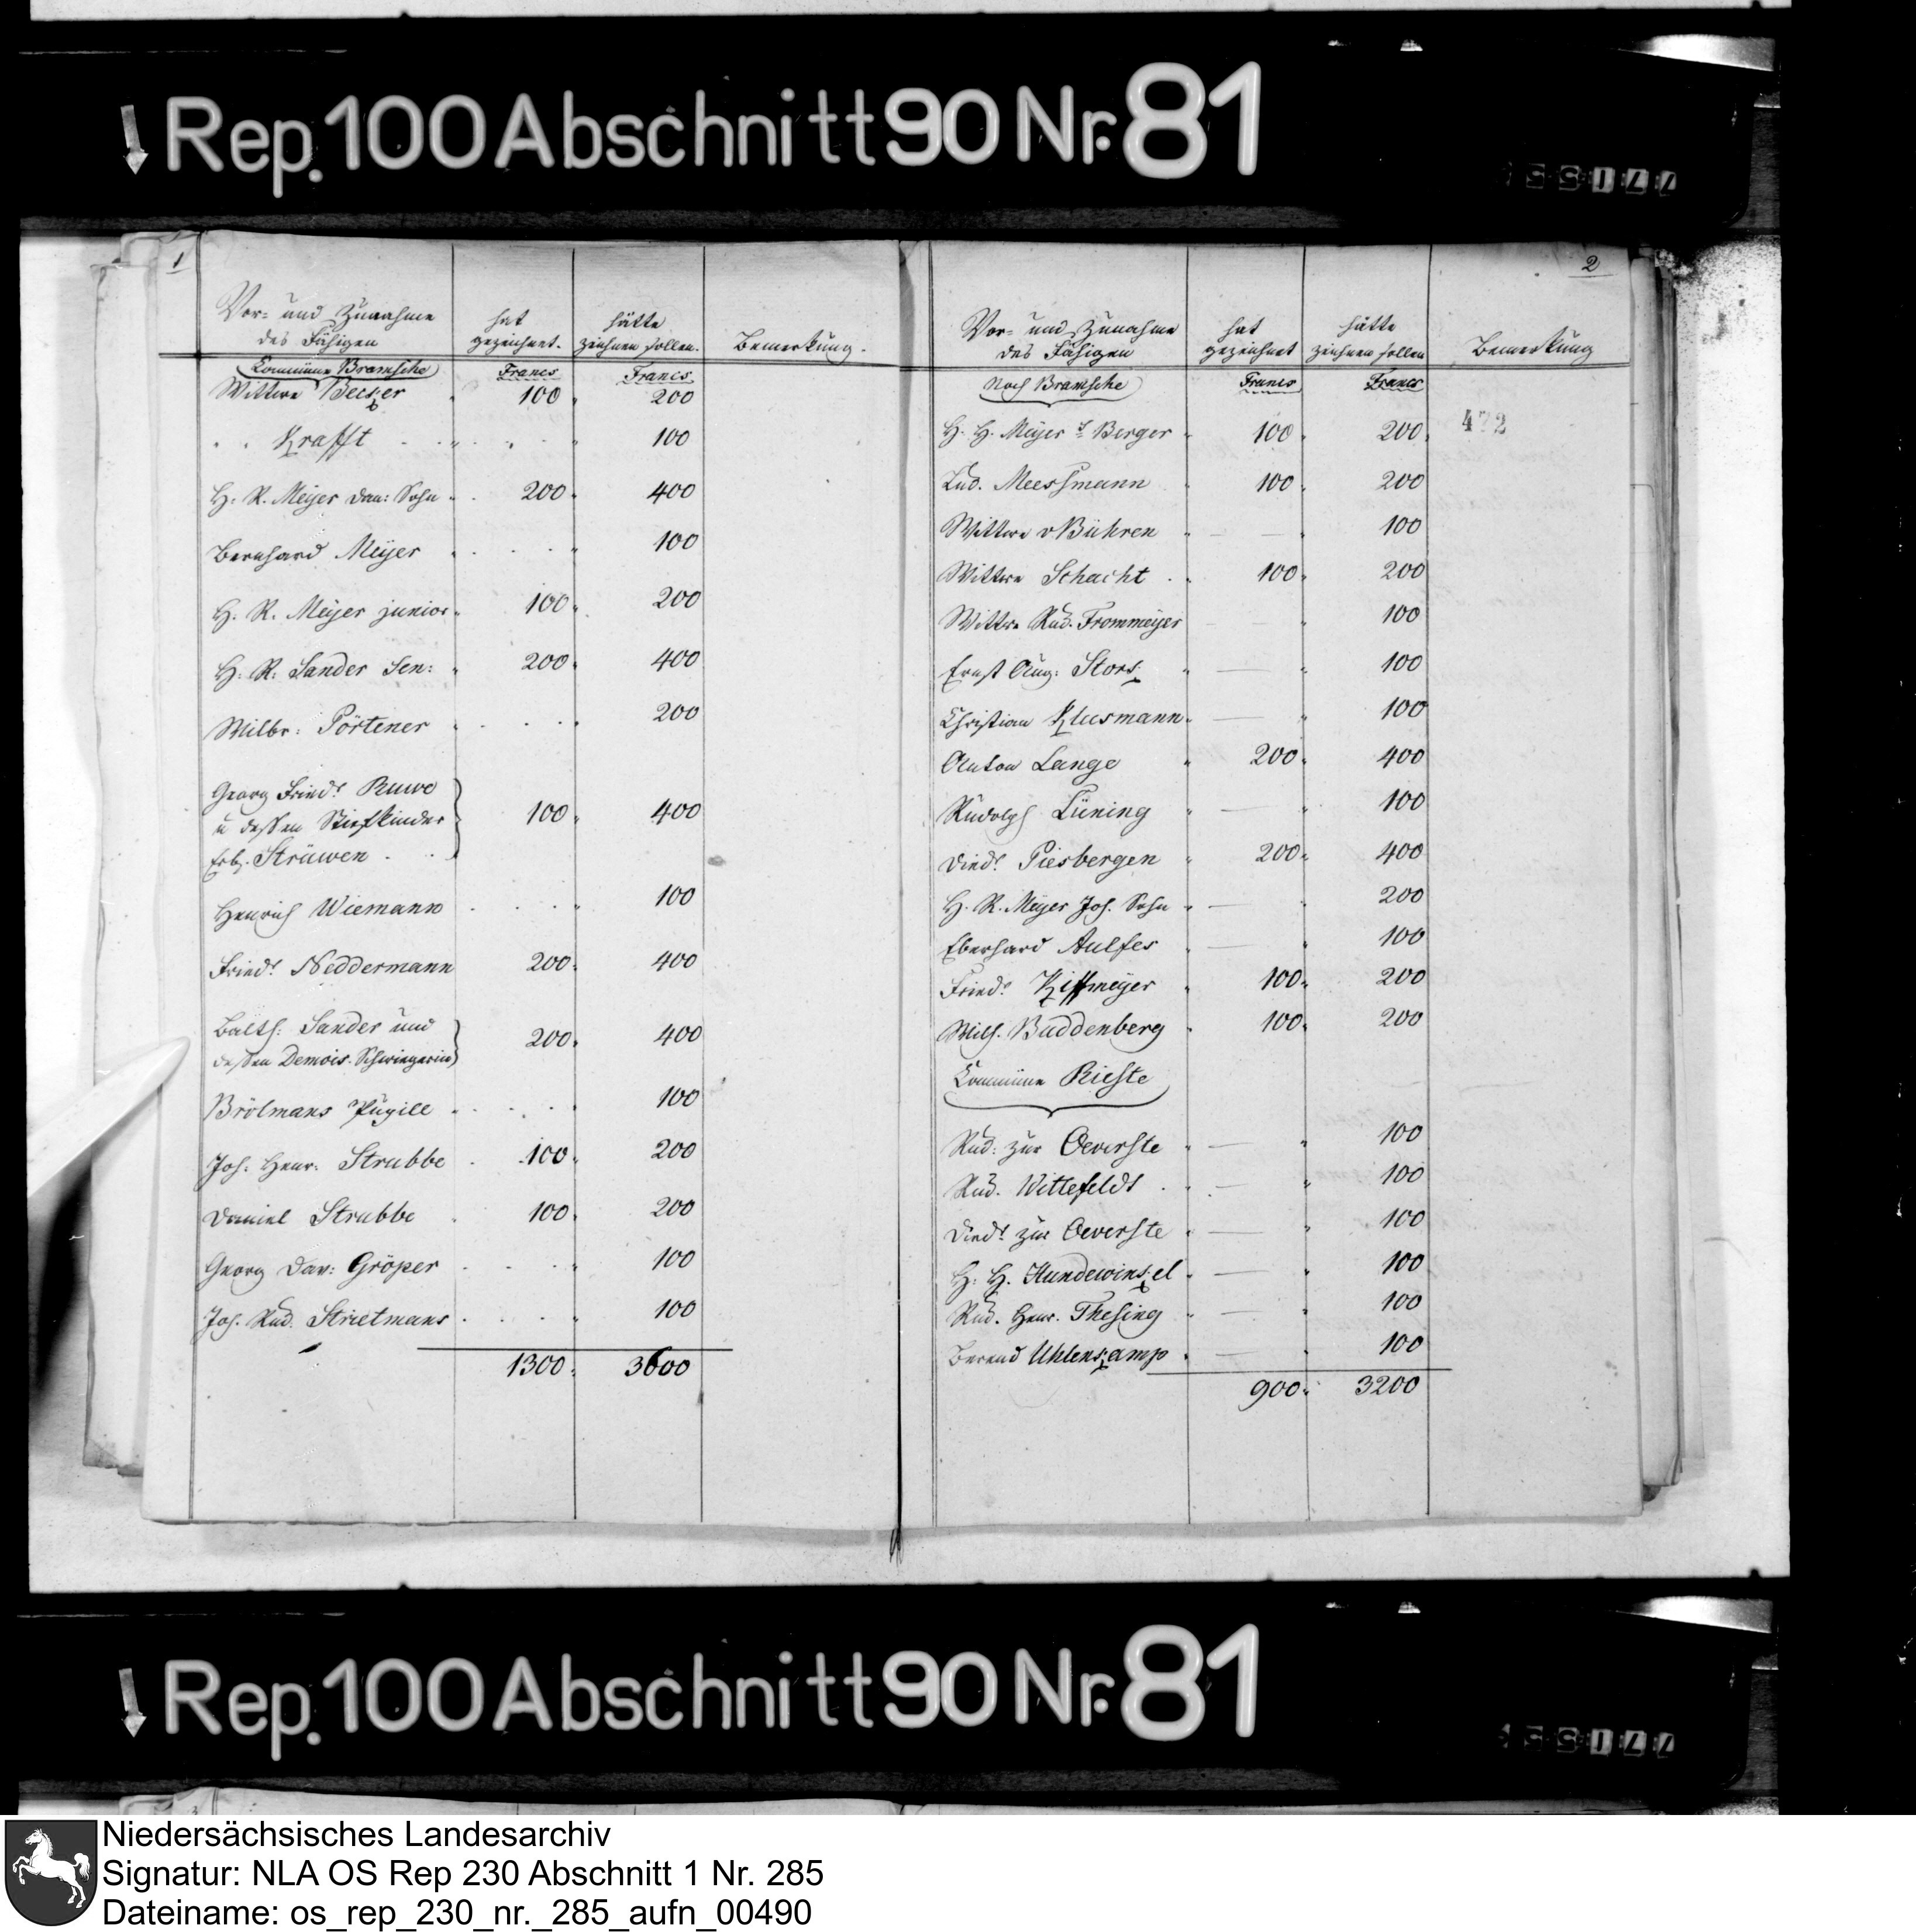 Rep. 100 Abschnitt 90 Nr. 81
1
Vor= und Zunahme des Fähigen | hat gezeichnet. | hätte zeichnen sollen. | Bemerkung.
Commüne Bramsche | Francs | Francs
Wittwe Becker " 100 " 200
" " Krafft " 100
H. R. Meÿer Dan: Sohn " 200 " 400
Bernhard Meÿer " 100
H. R. Meÿer junior " 100 " 200
H. R. Sander Sen: " 200 " 400
Wilbr: Pörtener " 200
Georg Fried: Ruwe
u dessen Stiefkinder 100 " 400
Erbz. Strüwen
Henrich Wiemann " 100
Fried: Neddermann 200 " 400
Balth: Sander und
dessen Demois. Schwiegerin 200 " 400
Brölmans Pupille " 100
Joh: Henr: Strubbe 100 " 200
Daniel Strubbe 100 " 200
Georg Dav: Gröper " 100
Joh. Rud. Strietmans " 100
1300 " 3600
2
Vor= und Zunahme des Fähigen | hat gezeichnet | hätte zeichnen sollen | Bemerkung
Noch Bramsche | Francs | Francs
472
H. H. Meÿer & Berger " 100 " 200
Lud. Meessmann " 100 " 200
Wittwe v Bühren " — — " 100
Wittwe Schacht " 100 " 200
Wittwe Rud. Frommeÿer — " 100
Ernst Aug: Stork " — " 100
Christian Klusmann " — " 100
Anton Lange " 200 " 400
Rudolph Lüning " — " 100
Died: Piesbergen " 200 " 400
H. R. Meÿer Joh. Sohn " — " 200
Eberhard Aulfes " — " 100
Fried: Kiffmeÿer " 100 " 200
Wilh. Buddenberg " 100 " 200
Commüne Rieste
Rud: zur Oeverste " — " 100
Rud. Wittefeldt " — " 100
Died: zur Oeverste " — " 100
H: H. Hundewinkel " — " 100
Rud. Henr. Thesing " — " 100
Berend Uhlenkamp " — " 100
900 " 3200
Rep. 100 Abschnitt 90 Nr. 81
Niedersächsisches Landesarchiv
Signatur: NLA OS Rep 230 Abschnitt 1 Nr. 285
Dateiname: os_rep_230_nr._285_aufn_00490